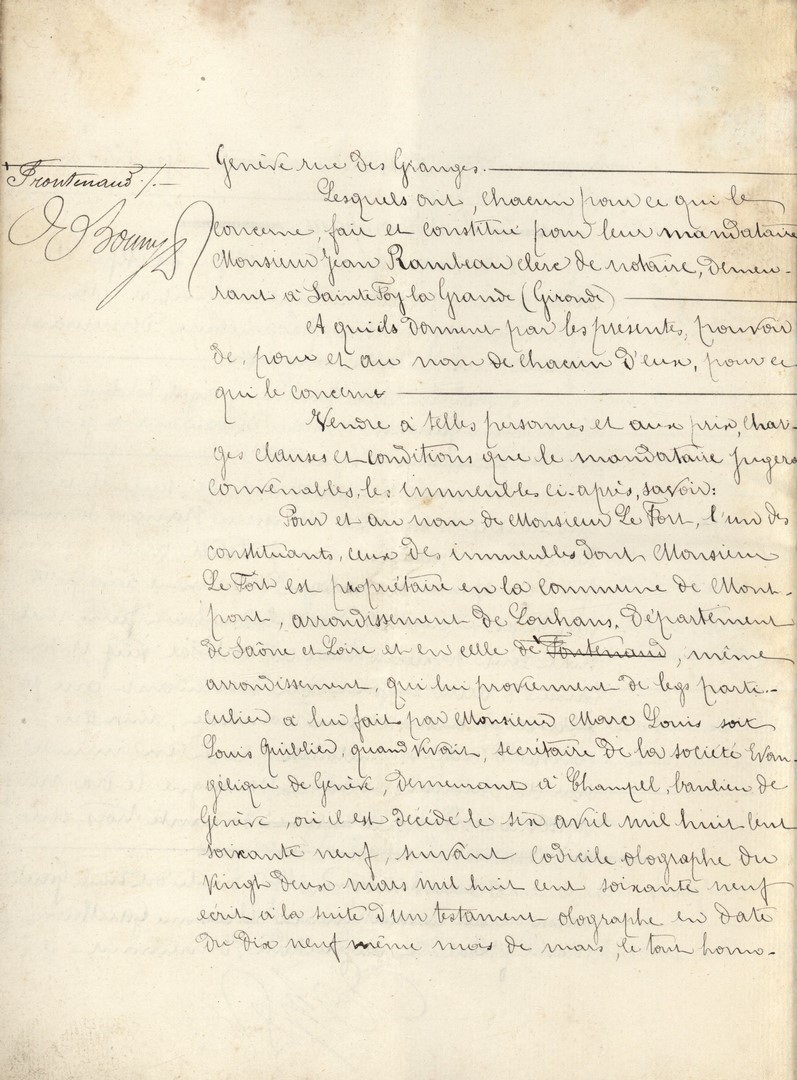 Frontenaud ./.
Genève rue des Granges.
Lesquels ont, chacun pour ce qui le
concerne, fait et constitué pour leur mandataire
Monsieur Jean Rambeau clerc de notaire, demeu-
rant à Sainte Foy la Grande (Gironde)
Et qu'ils donnent par les présentes, pouvoir
de, pour et au nom de chacun d'eux, pour ce
qui le concerne
Vendre à telles personnes et aux prix, char-
ges clauses et conditions que le mandataire jugera
convenables, les immeubles ci-après, savoir:
Pour et au nom de Monsieur Le Fort, l'un des
constituants, ceux des immeubles dont Monsieur
Le Fort est propriétaire en la commune de Mont-
pont, arrondissement de Louhans, Département
de Saône et Loire et en celle de Fontenaud, même
arrondissement, qui lui proviennent de legs parti-
culier à lui fait par Monsieur Marc Louis soit
Louis Quiblier, quand vivait, secrétaire de la société Evan-
gélique de Genève, demeurant à Champel, banlieu de
Genève, où il est décédé le six avril mil huit cent
soixante neuf, suivant codicile olographe du
vingt deux mars mil huit cent soixante neuf
écrit à la suite d'un testament olographe en date
du dix neuf même mois de mars, le tout homo-